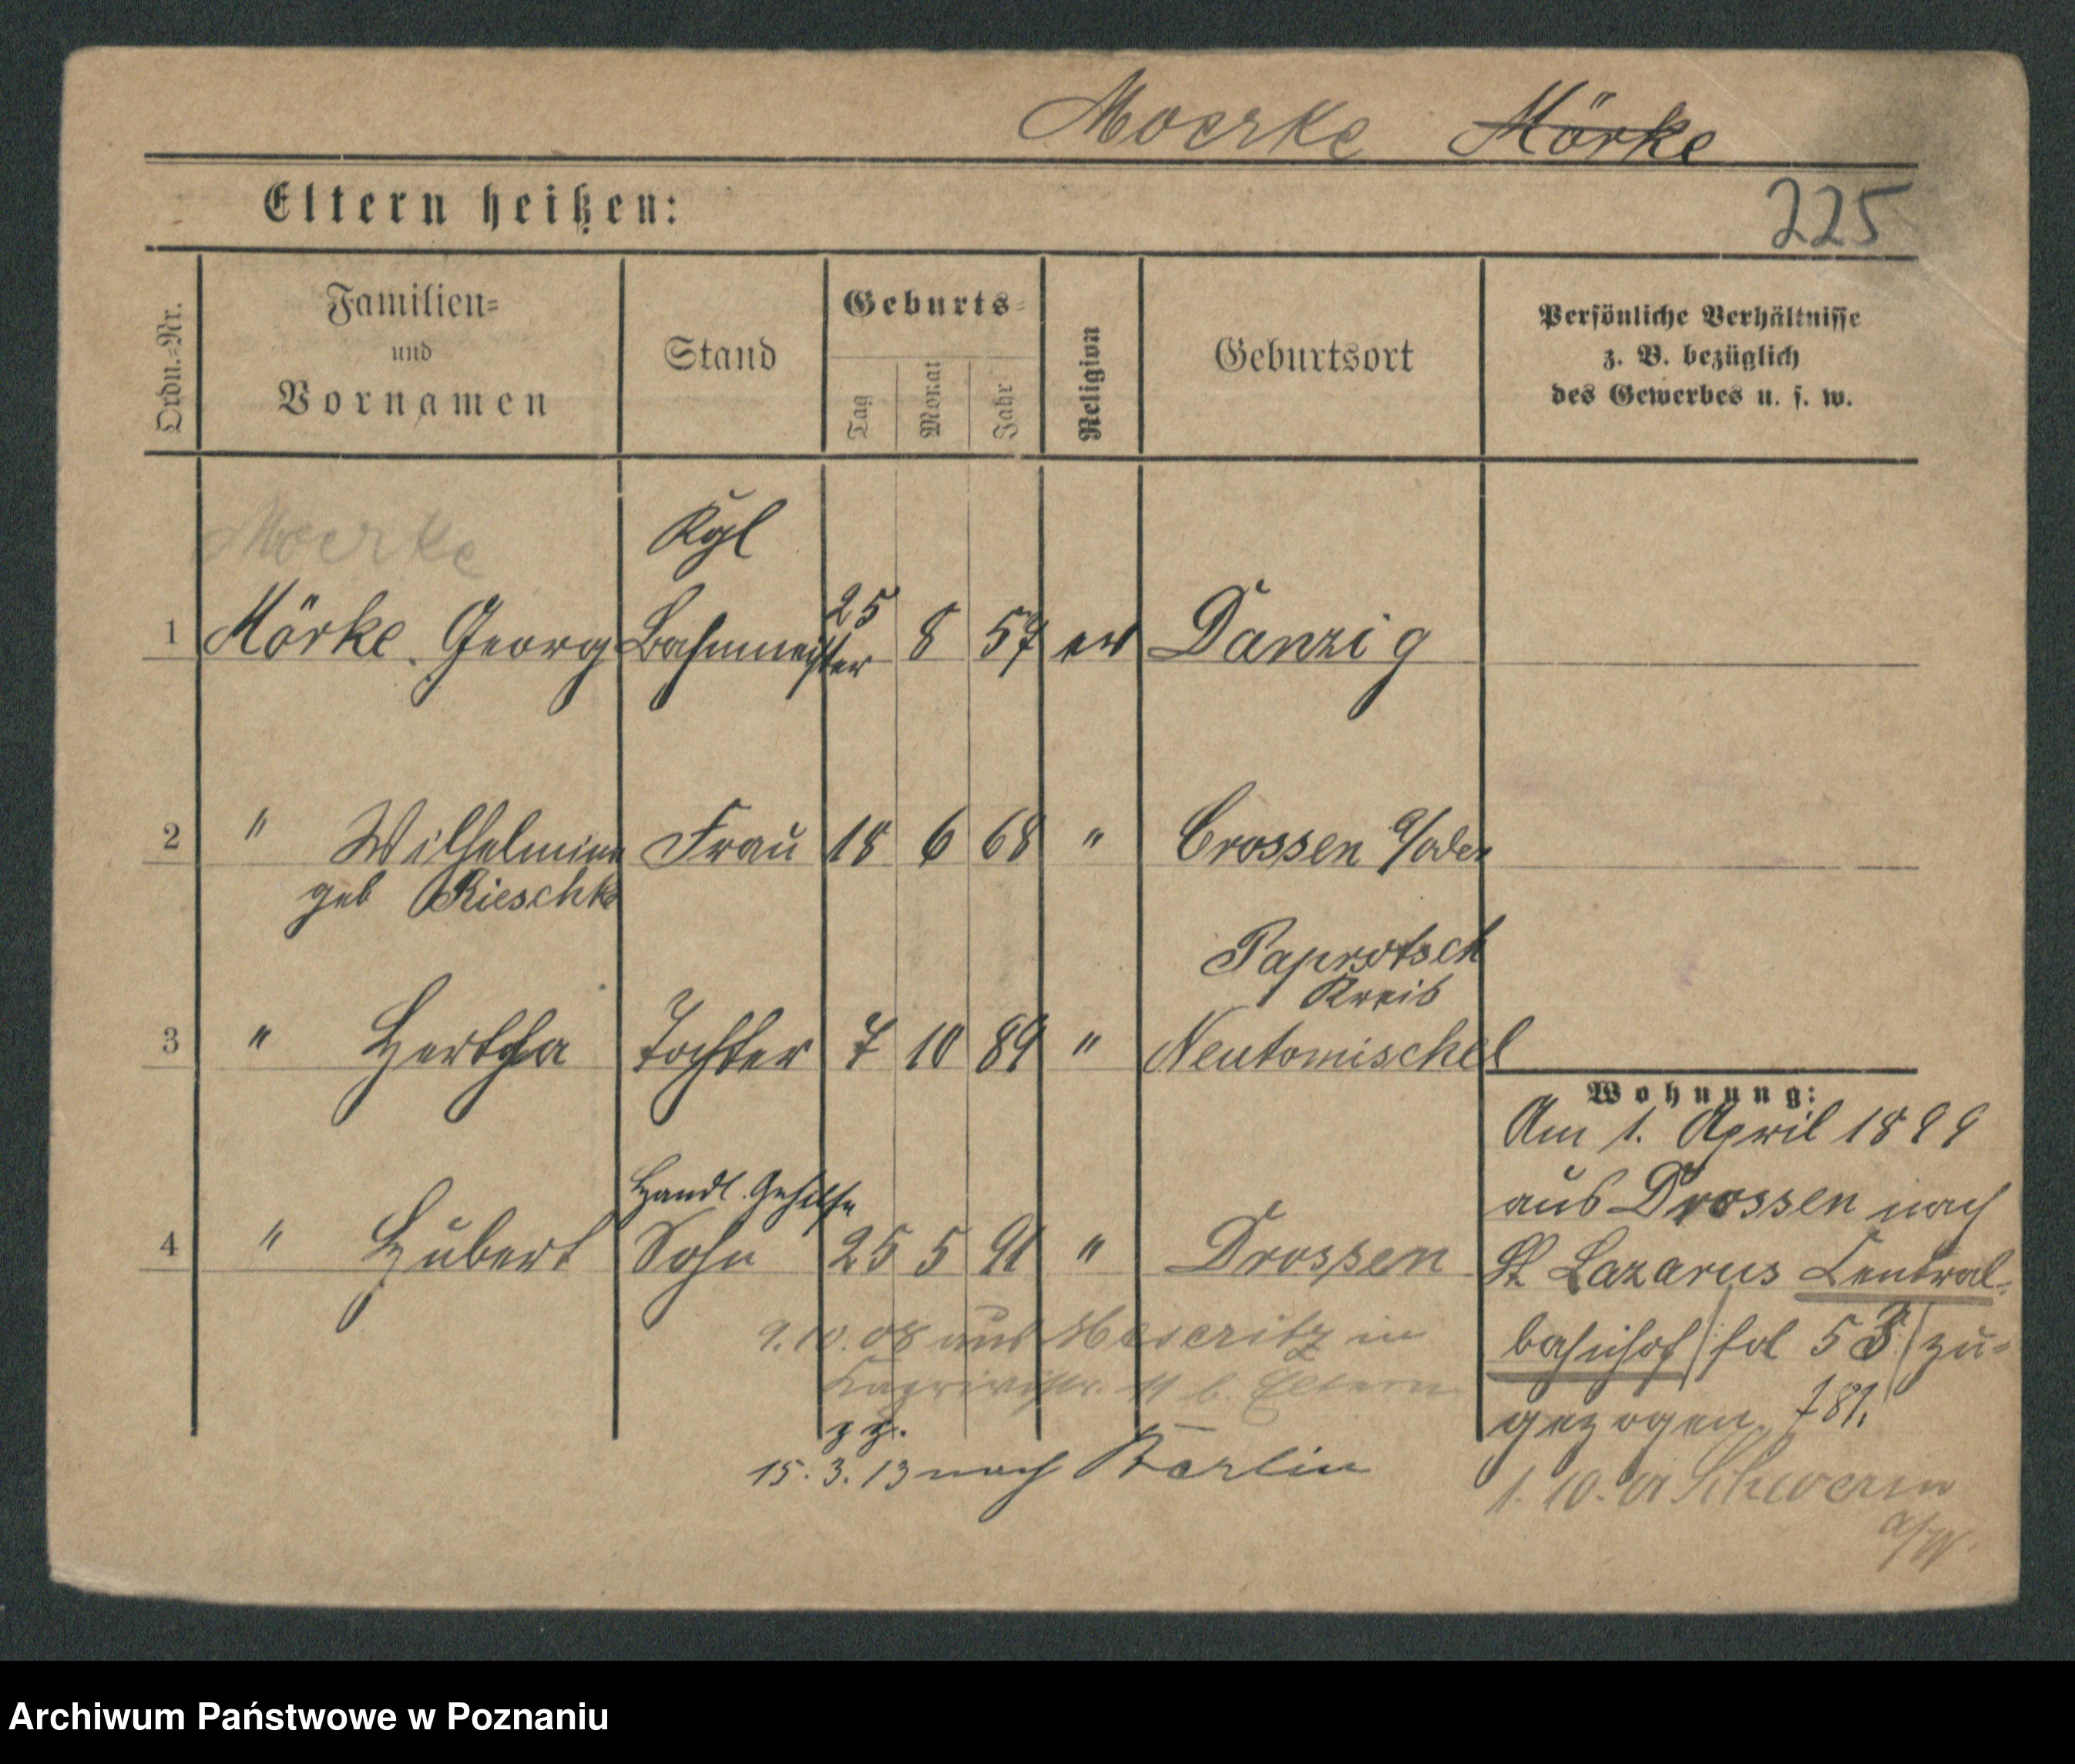 Moerke Mörke
Eltern heißen:
225
Ordn.-Nr.
Familien-
und
Vornamen
Stand
Geburts-
Tag
Monat
Jahr
Religion
Geburtsort
Persönliche Verhältnisse
z. B. bezüglich
des Gewerbes u. s. w.
Moerke
Kgl
1 Mörke Georg Bahnmeister 25 8 57 ev Danzig
2 " Wilhelmine Frau 18 6 68 " Crossen a/oder
geb Rieschke
Paprotsch
Kreis
3 " Hertha Tochter 7 10 89 " Neutomischel
Wohnung:
Am 1. April 1899
aus Drossen nach
Handl. Gehilfe
4 " Hubert Sohn 25 5 91 " Drossen
St Lazarus Central-
bahnhof fol 53 zu-
gezogen. 781.
1.10.01 Schwerin
a/W.
9.10.08 aus Meseritz in
11 b. Eltern
zg.
15.3.13 nach Berlin
Archiwum Państwowe w Poznaniu